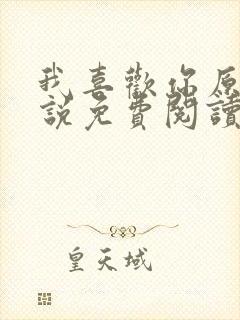 我喜歡你原
說免費閱讀
皇天域